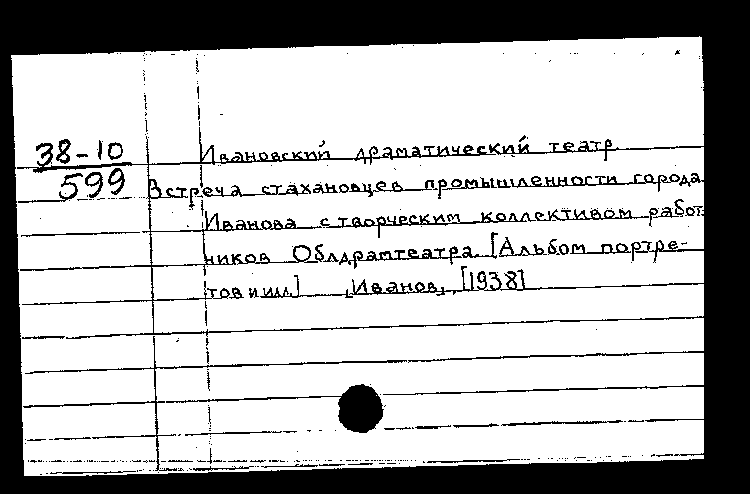 38-10
599
Ивановский драматический театр
Встреча стахановцев промышленности города
Иванова с творческим коллективом работ-
ников Облдрамтеатра. [Альбом портре-
тов и илл.] Иваново, [1938]